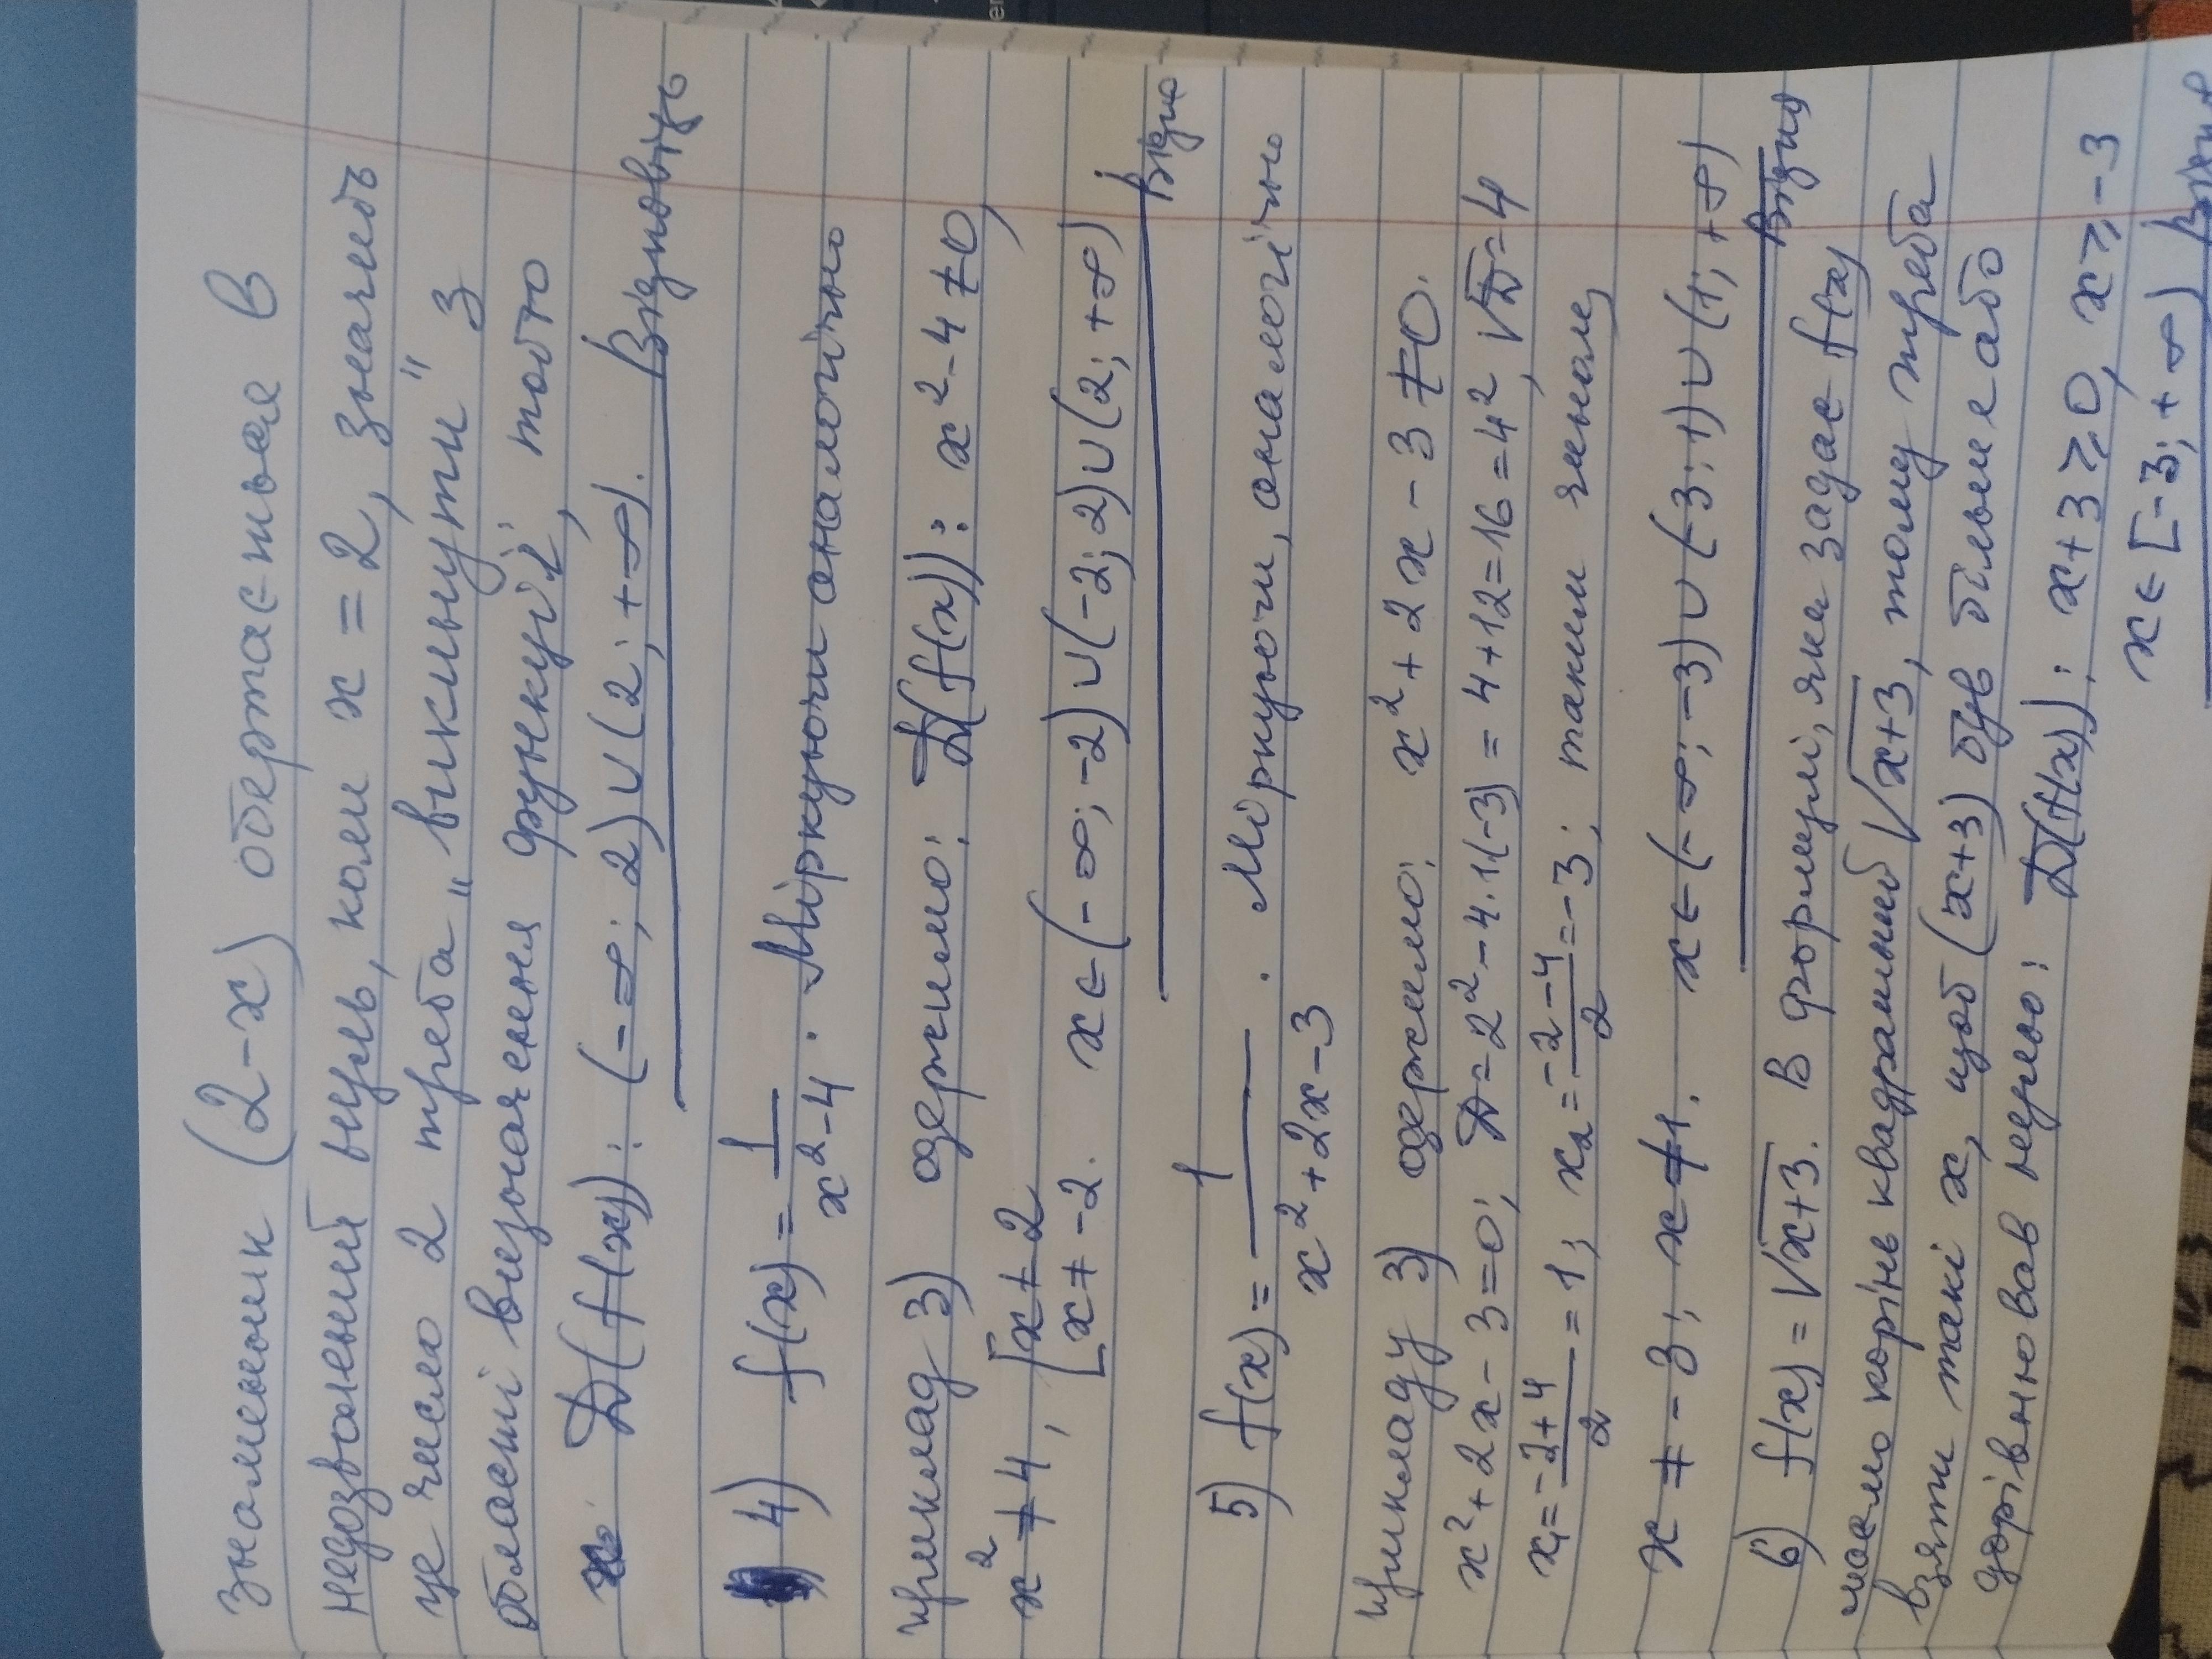 знаменник (2-x) обертаєься в
недозволений нуль, коли x = 2, значить
це число 2 треба „викинути" з
області визначення функції, тобто
D(f(x)): (-∞; 2)∪(2; +∞). Відповідь
4) f(x) = 1/(x²-4). Міркуючи аналогічно
приклад 3) одержимо: D(f(x)): x²-4≠0,
x²≠4, [x≠2 x≠-2. x∈(-∞; -2)∪(-2; 2)∪(2; +∞) Відпо
5) f(x) = 1/(x²+2x-3). Міркуючи, аналогічно
прикладу 3) одержимо: x²+2x-3≠0.
x²+2x-3=0; D=2²-4·1·(-3)=4+12=16=4², √D=4
x₁=(-2+4)/2=1; x₂=(-2-4)/2=-3; таким чином,
x≠-3; x≠1. x∈(-∞; -3)∪(-3; 1)∪(1; +∞)
Відпо
6) f(x)=√x+3. В формулі, яка задає f(x)
маємо корінь квадратний √x+3, тому треба
взяти такі x, щоб (x+3) був більше або
дорівнював нулю: D(f(x)): x+3≥0, x≥-3
x∈[-3; +∞)